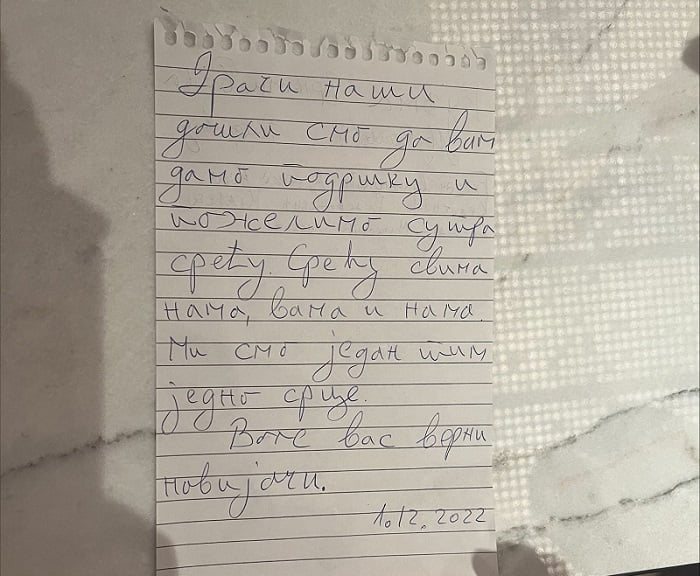 Играчи наши
дошли смо да вам
дамо подршку и
пожелимо сутра
срећу. Срећу свима
нама, вама и нама.
Ми смо један тим
једно срце.
Воле вас верни
новијачи.
1.12.2022